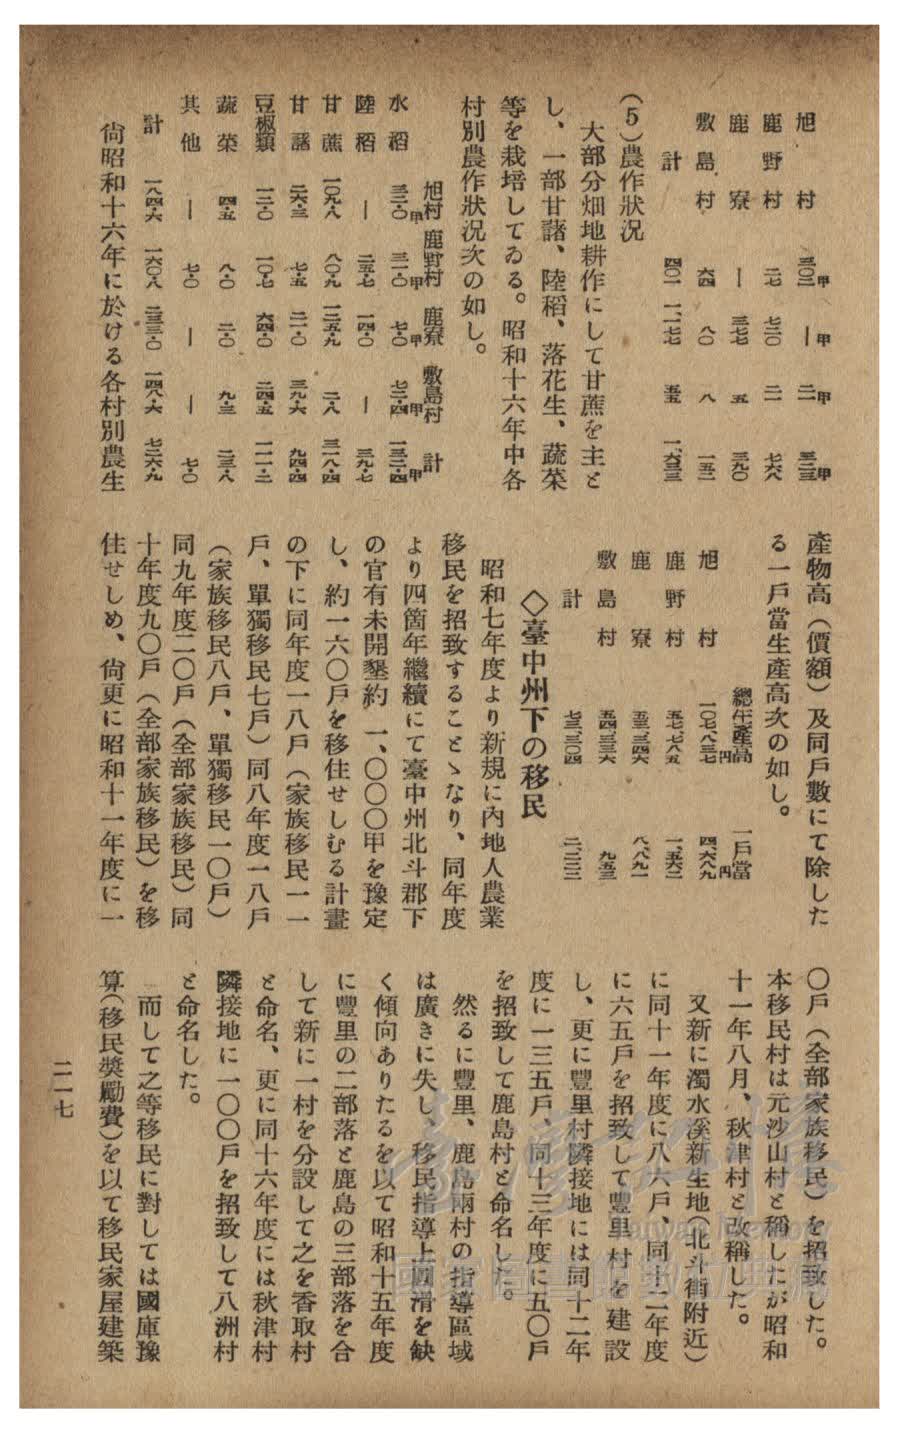 旭村 三〇三甲 ―甲 二一甲 三二三甲
鹿野村 二七 七二〇 二一 七六八
鹿寮 ― 三七七 五 三九〇
敷島村 六四 八〇 八 一五二
計 四〇一 一、一七七 五五 一、六三三
(5)農作狀況
大部分畑地耕作にして甘蔗を主と
し、一部甘藷、陸稻、落花生、蔬菜
等を栽培してゐる。昭和十六年中各
村別農作狀況次の如し。
旭村 鹿野村 鹿寮 敷島村 計
水稻 三二・〇甲 三一・〇甲 七・〇甲 七二・四甲 一三二・四甲
陸稻 ― 二五・七 一四・〇 ― 三九・七
甘蔗 一〇九・八 八〇・九 一二五・九 二・八 三一八・四
甘藷 二六・三 七・五 二一・〇 三九・六 九四・四
豆椒類 一二・〇 一〇・七 六四・〇 二四・五 一一一・二
蔬菜 四・五 八・〇 二・〇 九・三 二三・八
其他 ― 七・〇 ― ― 七・〇
計 一八四・六 一六〇・八 二三三・〇 一四八・六 七二六・九
尙昭和十六年に於ける各村別農生
產物高(價額)及同戶數にて除した
る一戶當生產高次の如し。
總生產高 一戶當
旭村 一〇七、八三七円 四、六八九円
鹿野村 五七、七八五 一、五六二
鹿寮 五三、三四六 八、八九一
敷島村 五四、三三六 九五三
計 七三、三〇四 二、二三三
◇臺中州下の移民
昭和七年度より新規に內地人農業
移民を招致することゝなり、同年度
より四箇年繼續にて臺中州北斗郡下
の官有未開墾約一、〇〇〇甲を豫定
し、約一六〇戶を移住せしむる計畫
の下に同年度一八戶(家族移民一一
戶、單獨移民七戶)同八年度一八戶
(家族移民八戶、單獨移民一〇戶)
同九年度二〇戶(全部家族移民)同
十年度九〇戶(全部家族移民)を移
住せしめ、尙更に昭和十一年度に一
〇戶(全部家族移民)を招致した。
本移民村は元沙山村と稱したが昭和
十一年八月、秋津村と改稱した。
又新に濁水溪新生地(北斗街附近)
に同十一年度に八六戶、同十二年度
に六五戶を招致して豐里村を建設
し、更に豐里村隣接地には同十二年
度に一三五戶、同十三年度に五〇戶
を招致して鹿島村と命名した。
然るに豐里、鹿島兩村の指導區域
は廣きに失し、移民指導上圓滑を缺
く傾向ありたるを以て昭和十五年度
に豐里の二部落と鹿島の三部落を合
して新に一村を分設して之を香取村
と命名、更に同十六年度には秋津村
隣接地に一〇〇戶を招致して八洲村
と命名した。
而して之等移民に對しては國庫豫
算(移民獎勵費)を以て移民家屋建築
二一七